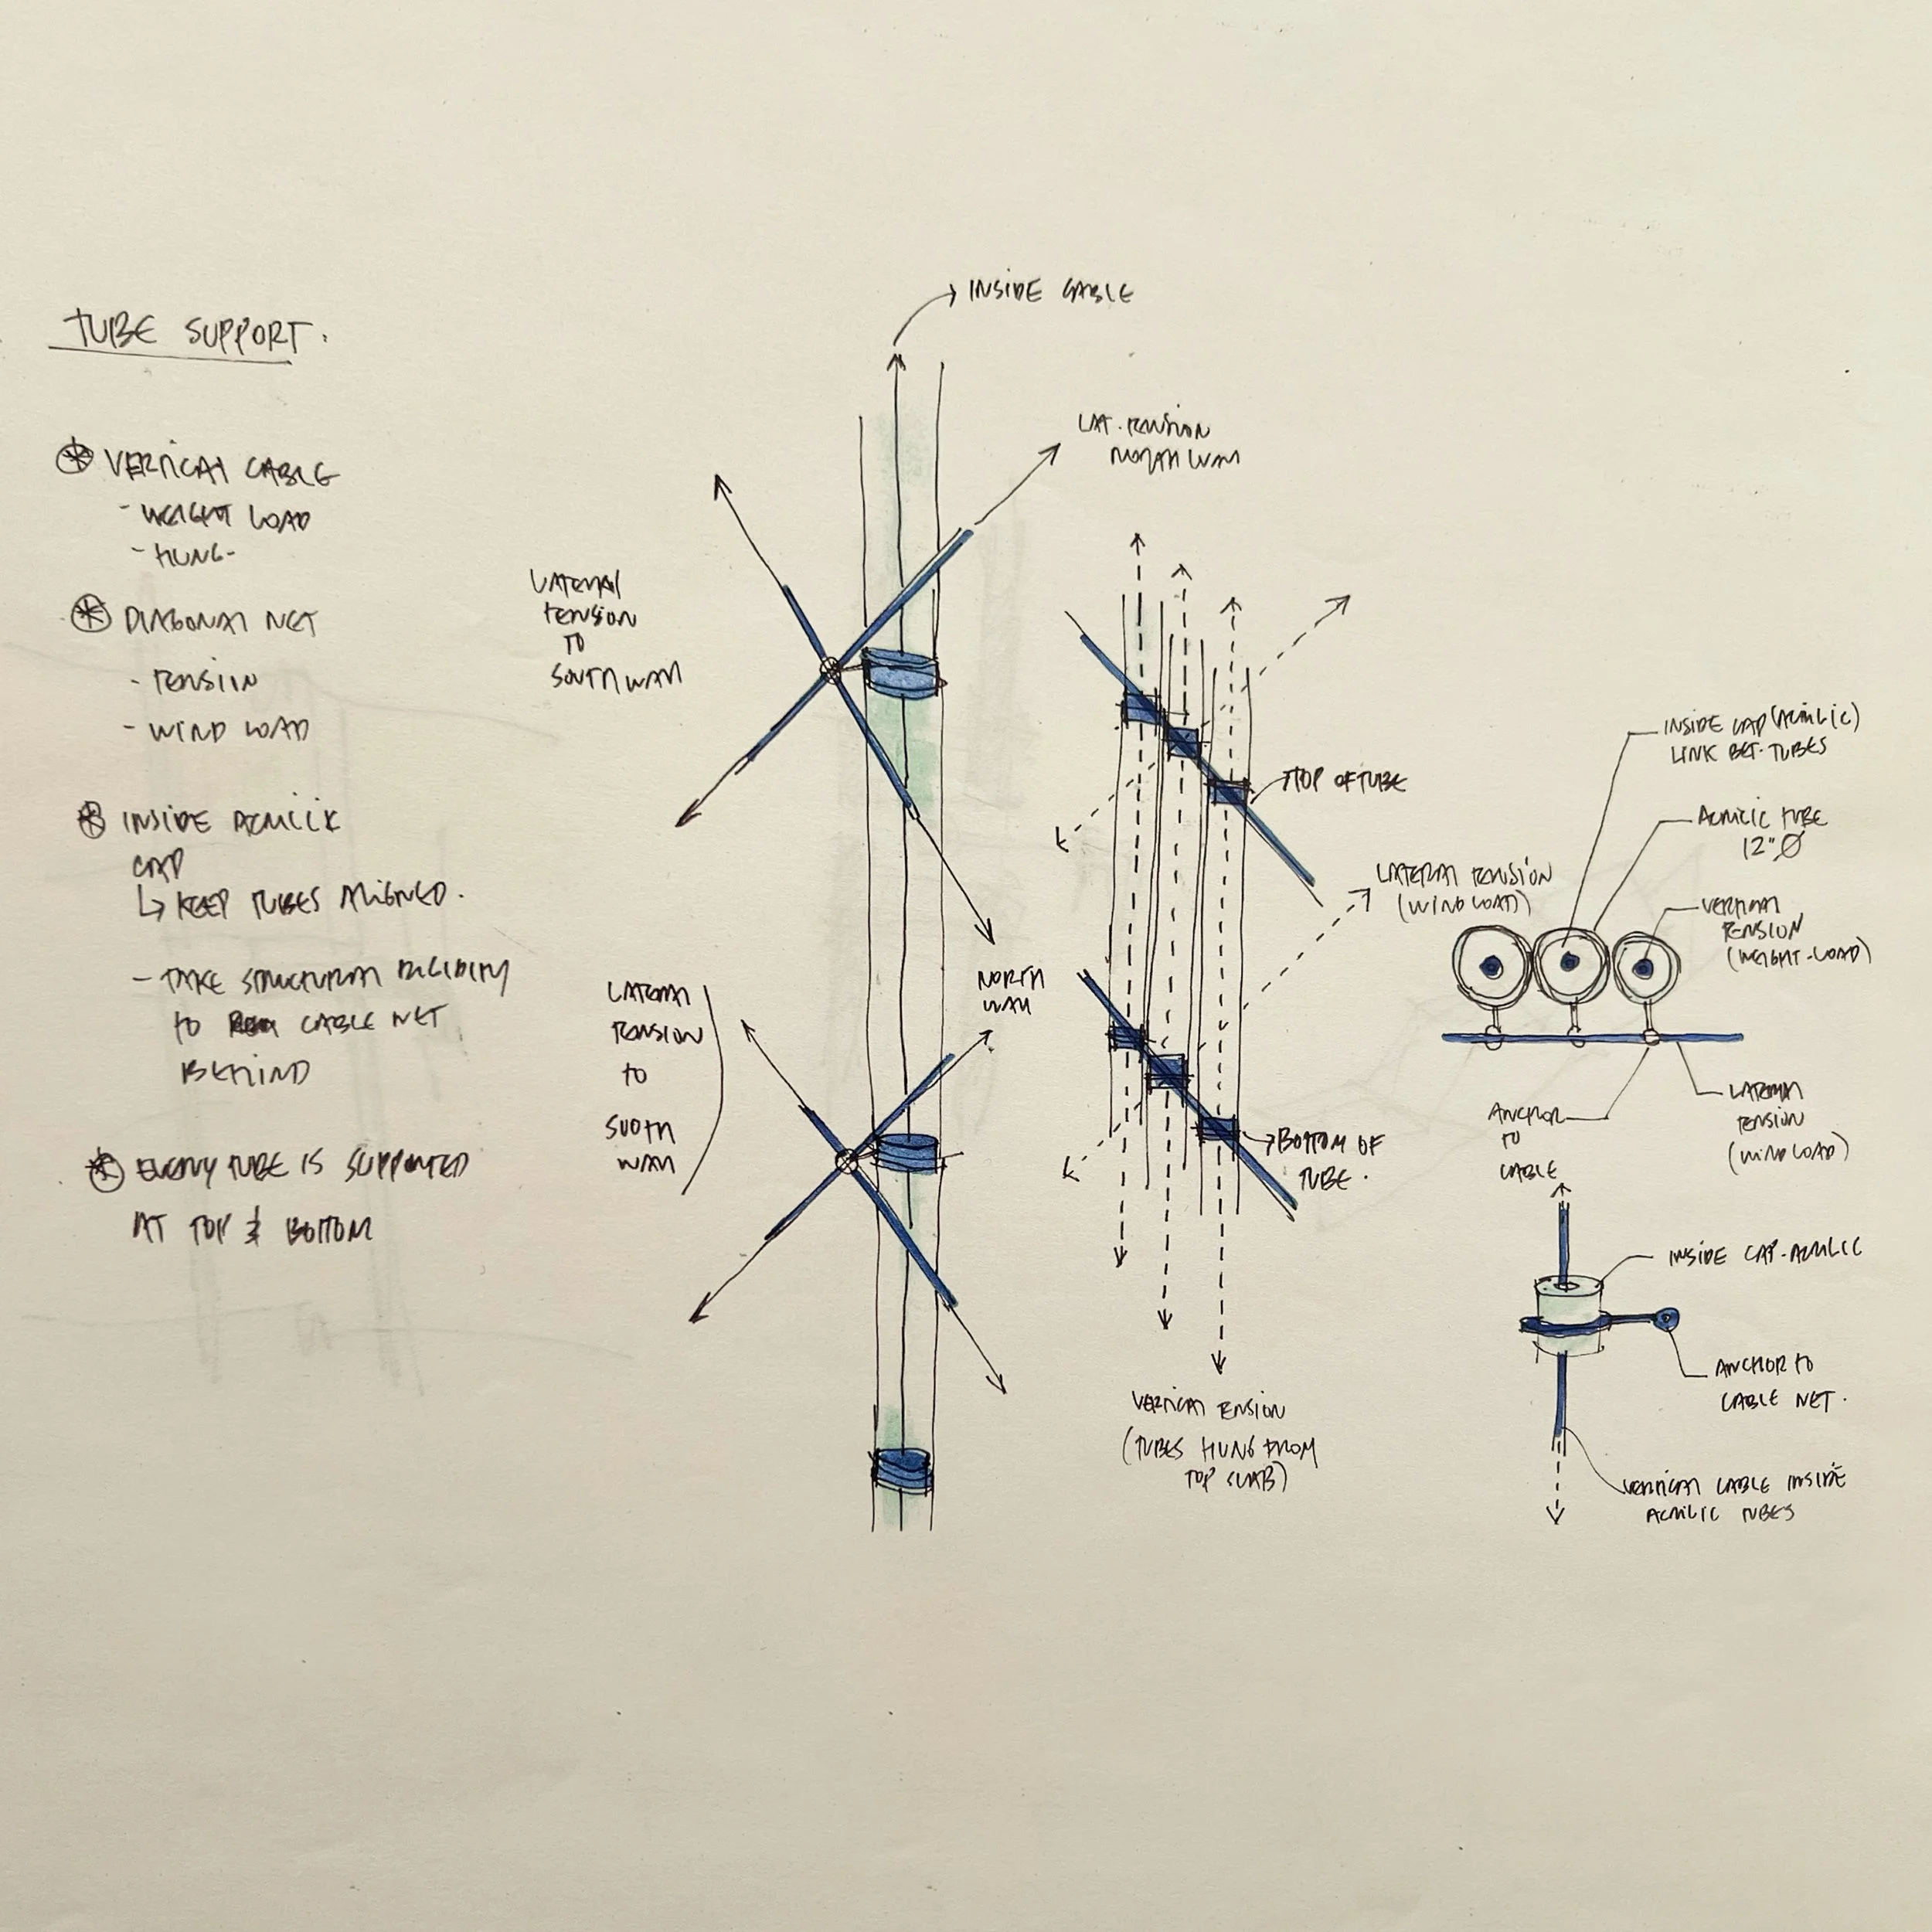 TUBE SUPPORT.
VERTICAL CABLE
- WEIGHT LOAD
- HUNG-
DIAGONAL NET
- TENSIIN
- WIND LOAD
INSIDE ACRILIK
CAP
↳ KEEP TUBES ALIGNED.
- TAKE STRUCTURAL RIGIDITY
TO CABLE NET
BEHIND
EVERY TUBE IS SUPPORTED
AT TOP & BOTTOM
INSIDE CABLE
LAT. TENSION
NORTH WALL
LATERAL
TENSION
TO
SOUTH WALL
LATERAL
TENSION
TO
SOUTH
WALL
NORTH
WALL
TOP OF TUBE
LATERAL TENSION
(WIND LOAD)
BOTTOM OF
TUBE.
VERTICAL TENSION
(TUBES HUNG FROM
TOP SLAB)
INSIDE CAP (ACRILIC)
LINK BET. TUBES
ACRILIC TUBE
12" Ø
VERTICAL
TENSION
(WEIGHT-LOAD)
LATERAL
TENSION
(WIND LOAD)
ANCHOR
TO
CABLE
INSIDE CAP-ACRILIC
ANCHOR TO
CABLE NET.
VERTICAL CABLE INSIDE
ACRILIC TUBES